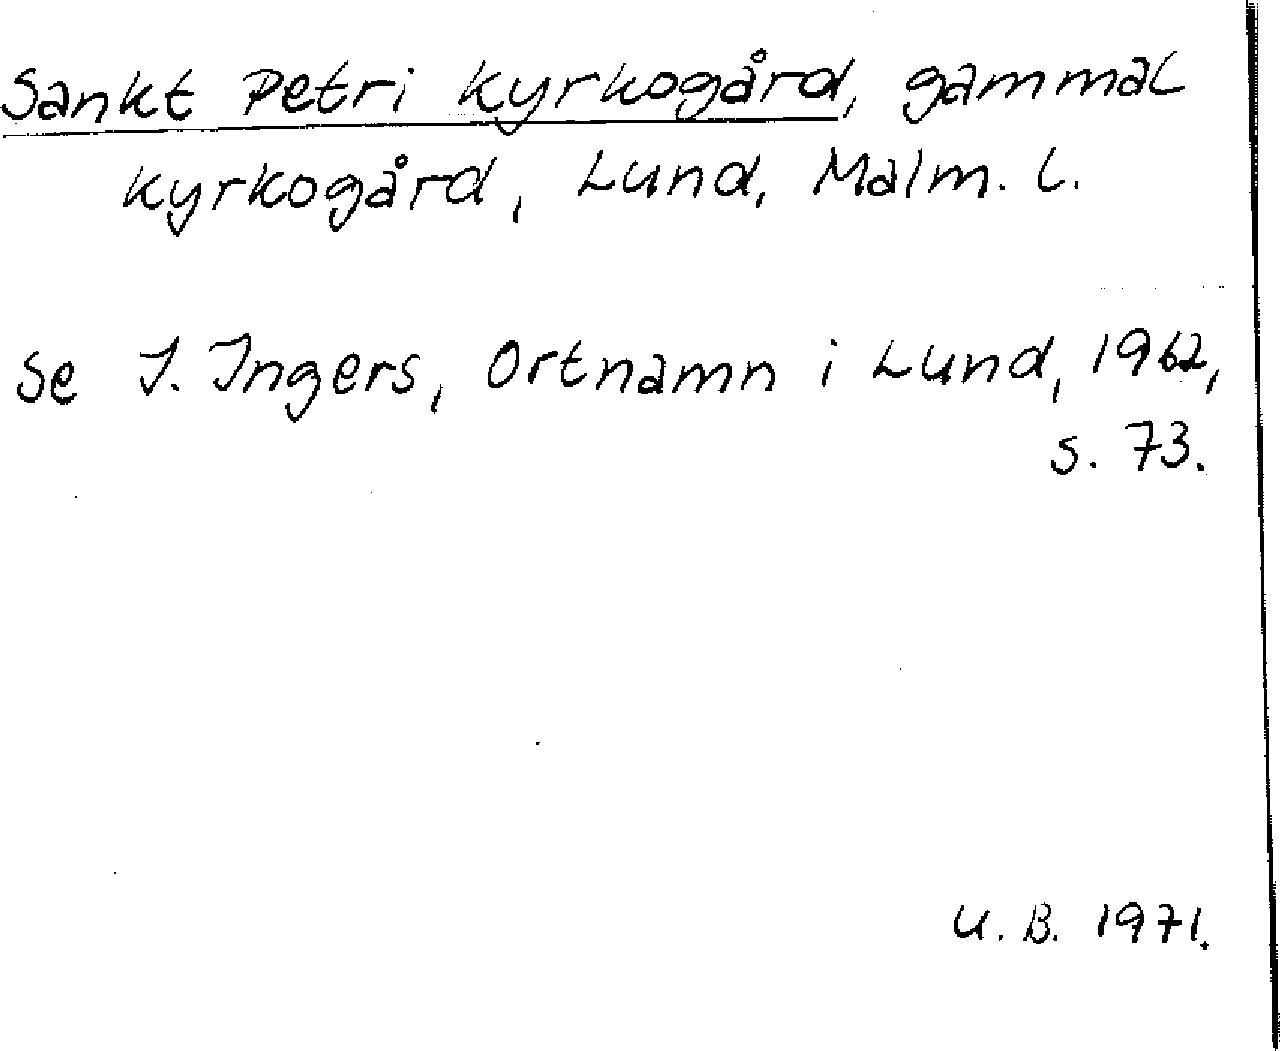 Sankt Petri kyrkogård, gammal
kyrkogård, Lund, Malm. l.
Se I. Ingers, Ortnamn i Lund, 1962,
s. 73.
U. B. 1971.